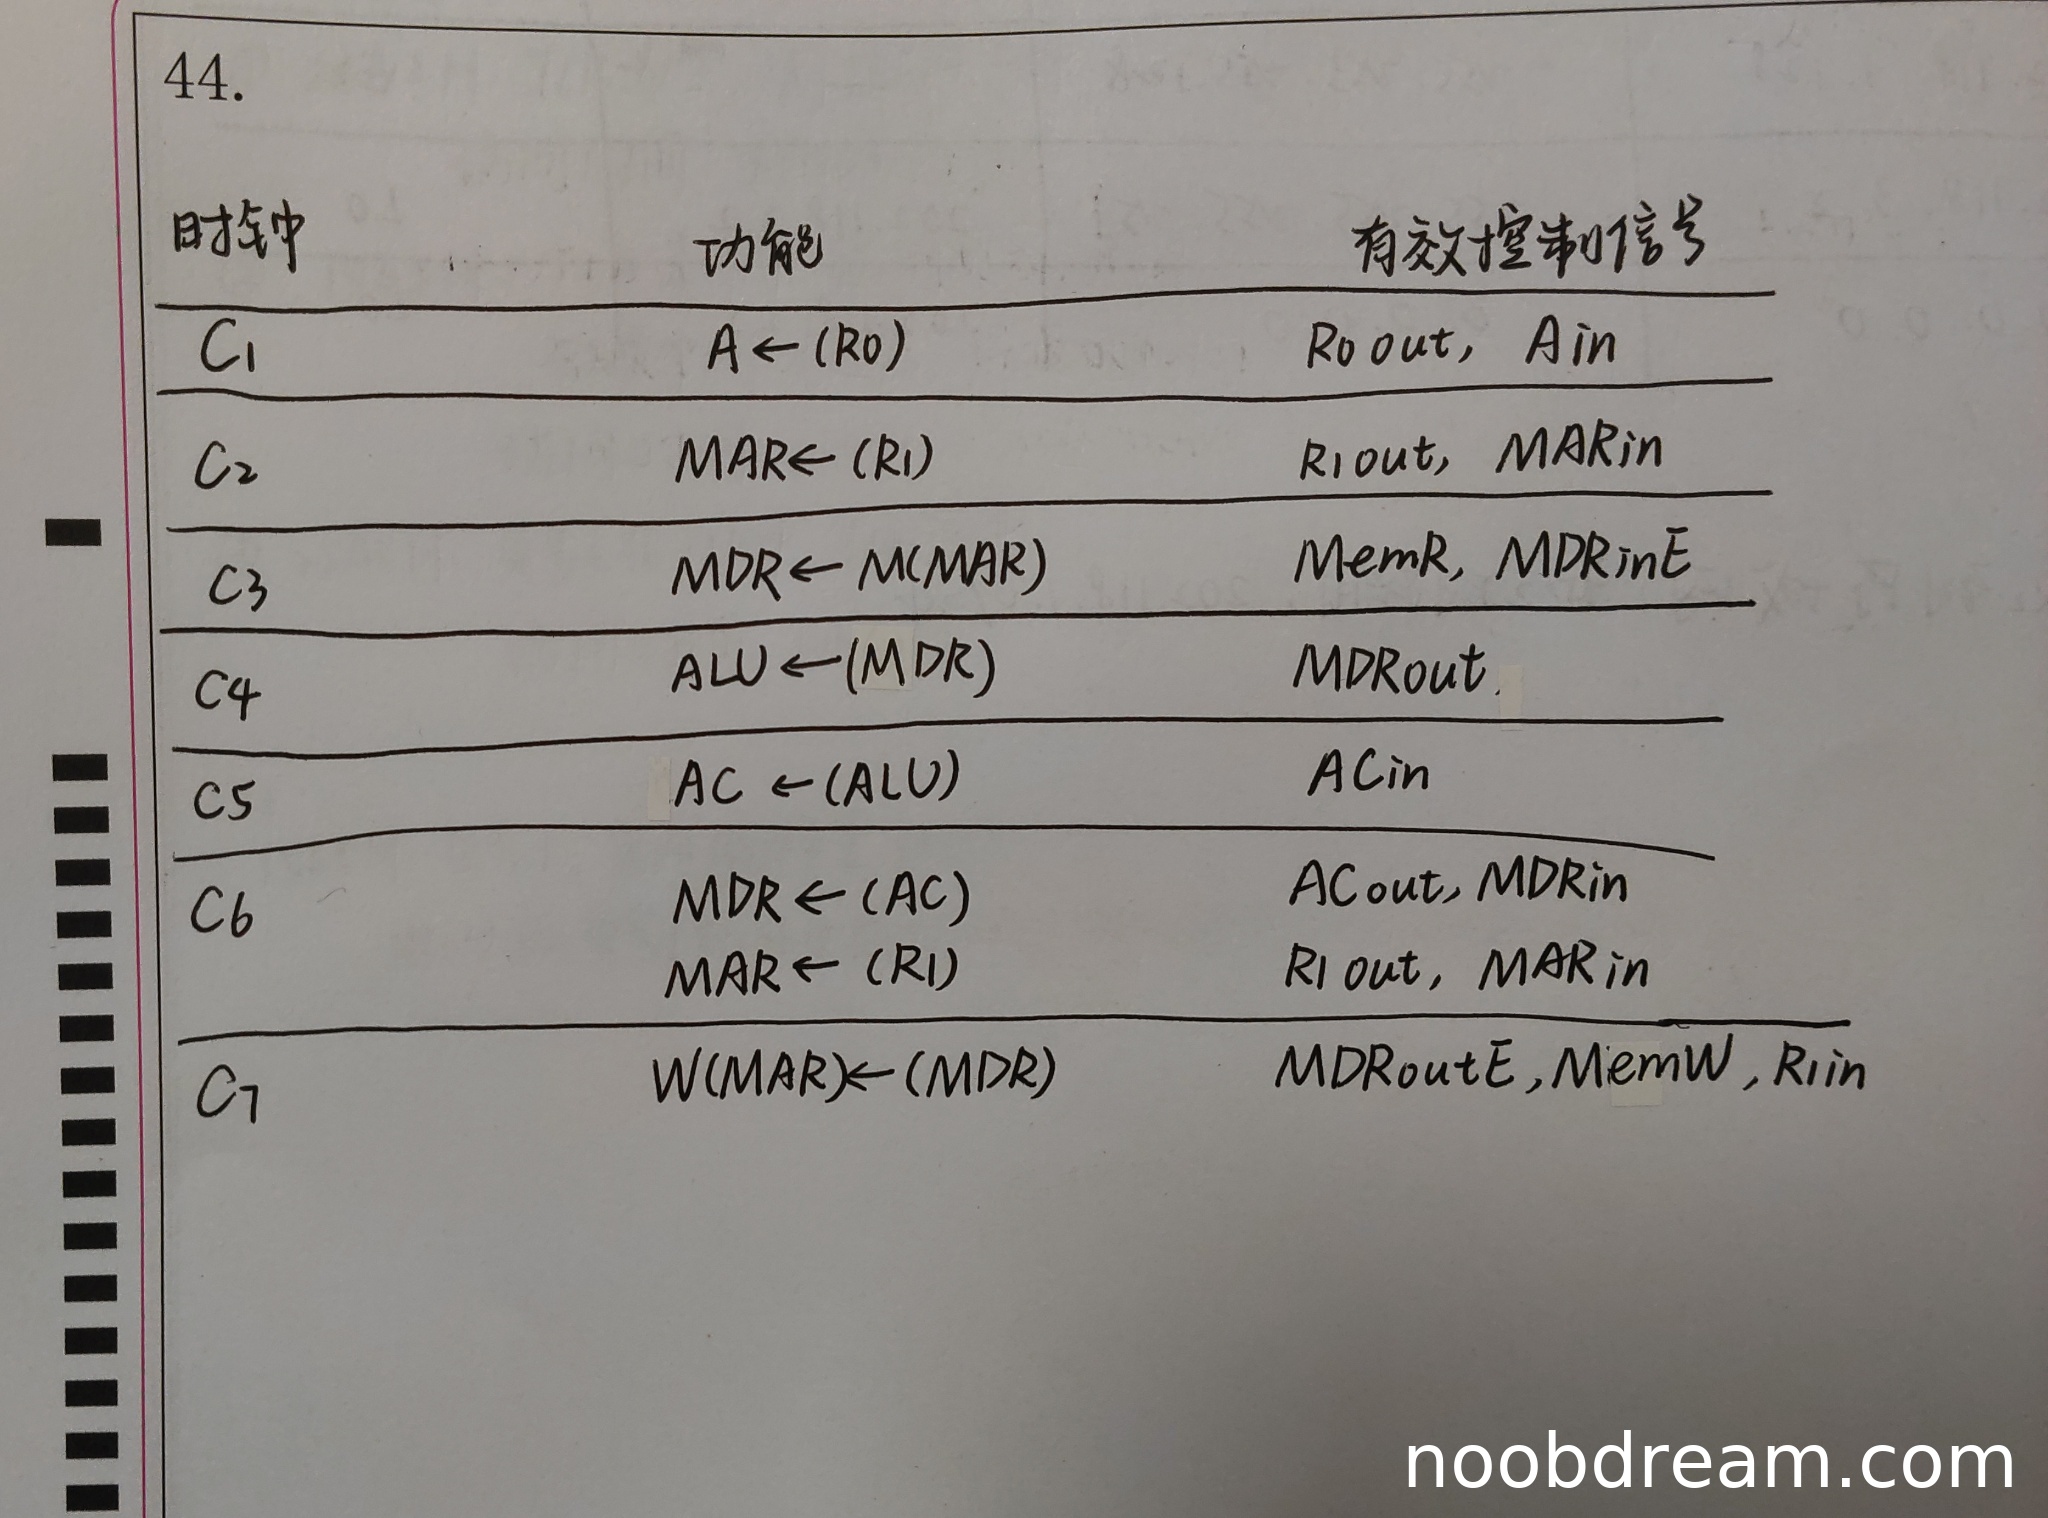 44.
时钟 功能 有效控制信号
C1 A←(R0) R0out, Ain
C2 MAR←(R1) R1out, MARin
C3 MDR←M(MAR) MemR, MDRinE
C4 ALU←(MDR) MDRout,
C5 AC←(ALU) ACin
C6 MDR←(AC) ACout, MDRin
MAR←(R1) R1out, MARin
C7 W(MAR)←(MDR) MDRoutE, MemW, R1in
noobdream.com